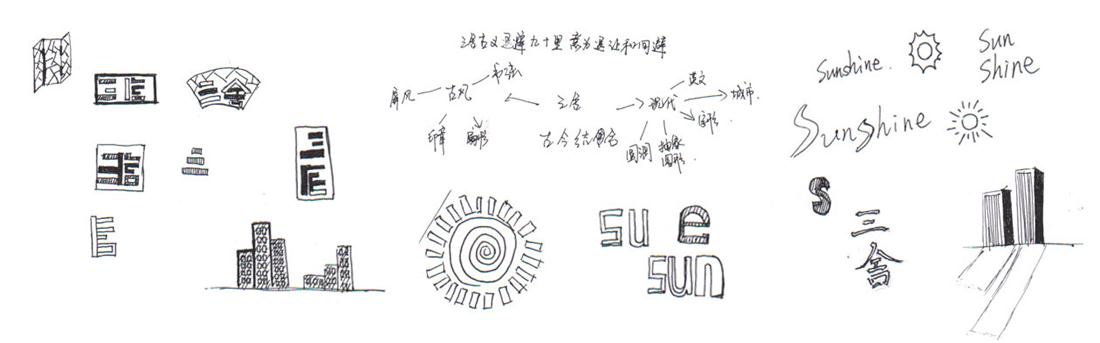 三舍古义退避九十里 意为退让和回避
书法
屏风
古风
印章
扇形
三舍
古今结合
现代
英文
城市.
图形.
抽象
图形.
Sunshine.
Sun
Shine
Sunshine
三舍
su e
sun
S
三
舍